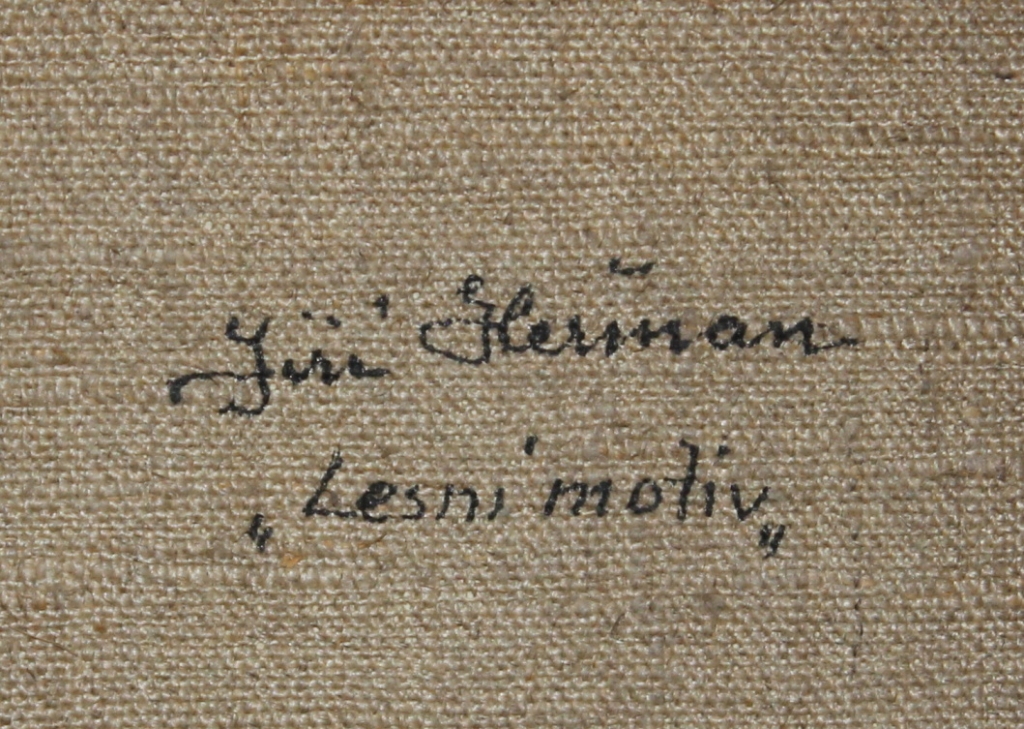 Jiří Heřman
„Lesní motiv„